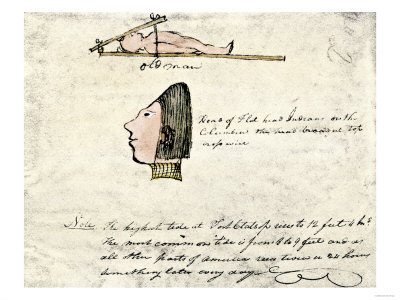 old man
Head of Flat head Indians on the
Columbia the head broadest top
crosswise
Note The highest tide at Fort Clatsop rises to 12 feet 4 Ins
The most common tide is from 8 to 9 feet and as
all other parts of america rises twice in 24 hours
something later every day